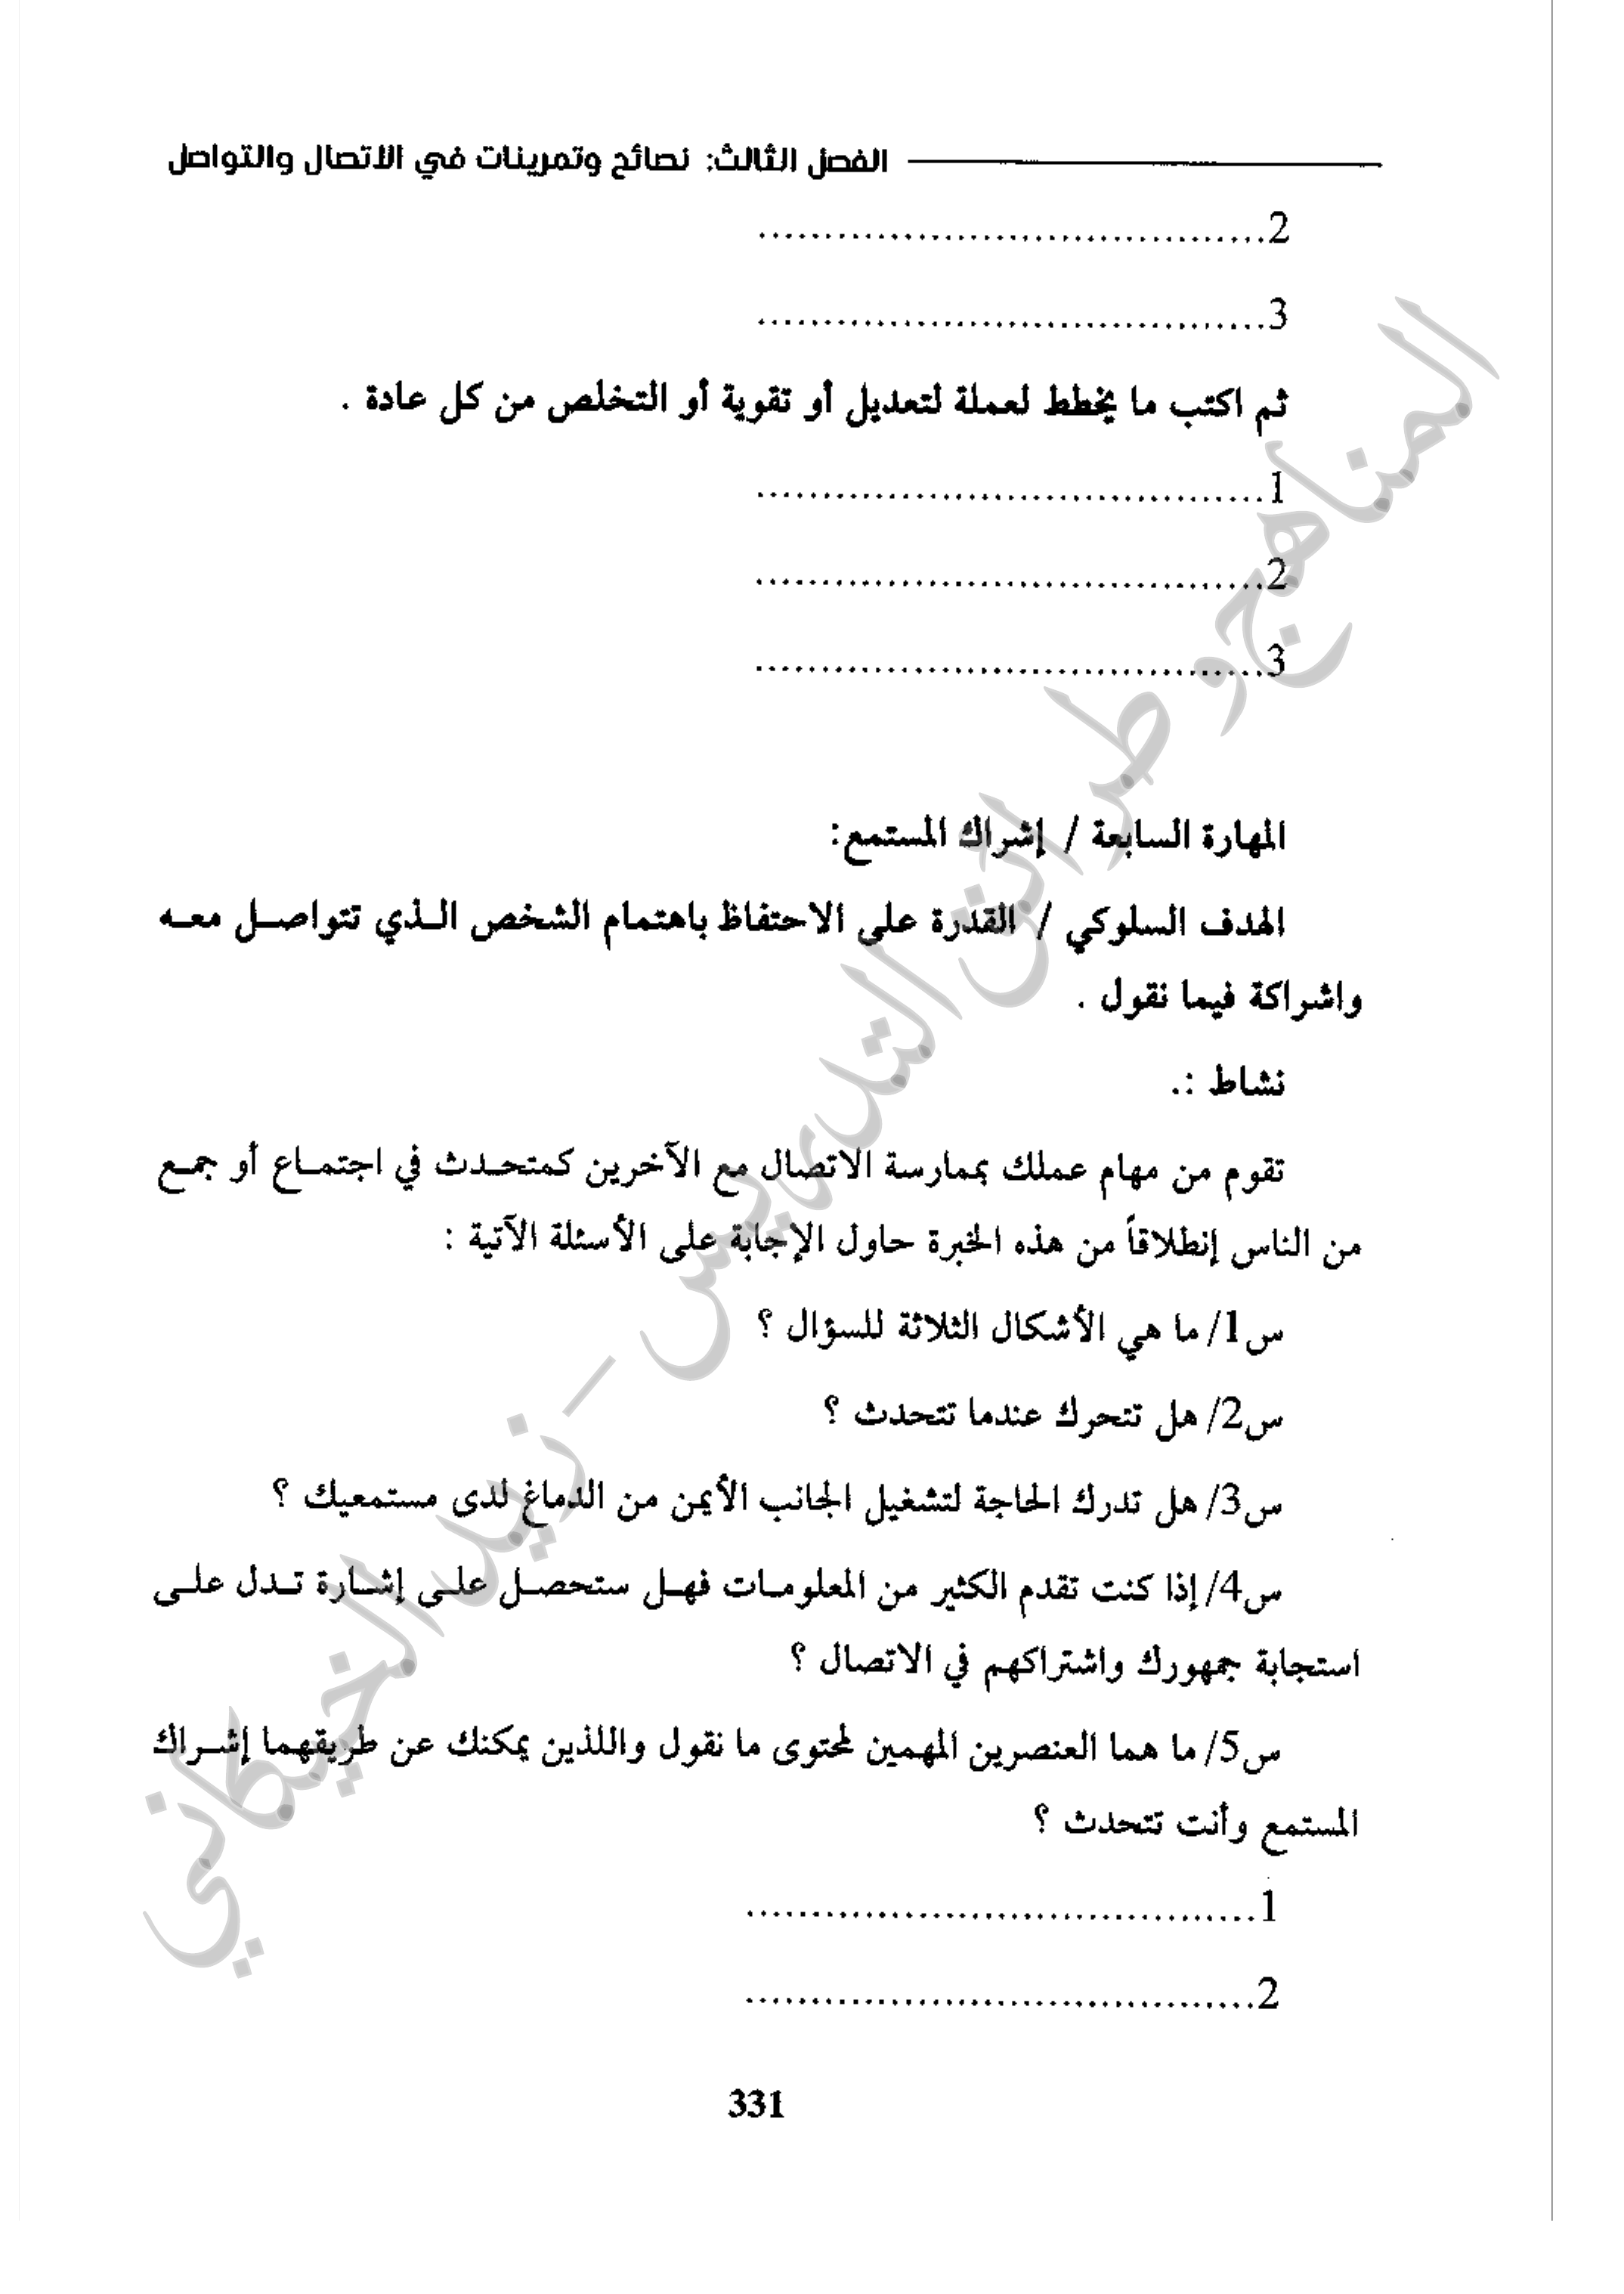 الفصل الثالث: نصائح وتمرينات في الاتصال والتواصل
2.......................................
3.......................................
ثم اكتب ما يخطط لعملة لتعديل أو تقوية أو التخلص من كل عادة .
1.......................................
2.......................................
3.......................................
المهارة السابعة / إشراك المستمع:
الهدف السلوكي / القدرة على الاحتفاظ باهتمام الشخص الذي تتواصل معه
واشراكة فيما نقول .
نشاط :.
تقوم من مهام عملك بممارسة الاتصال مع الآخرين كمتحدث في اجتماع أو جمع
من الناس إنطلاقاً من هذه الخبرة حاول الإجابة على الأسئلة الآتية :
س1/ ما هي الأشكال الثلاثة للسؤال ؟
س2/ هل تتحرك عندما تتحدث ؟
س3/ هل تدرك الحاجة لتشغيل الجانب الأيمن من الدماغ لدى مستمعيك ؟
س4/ إذا كنت تقدم الكثير من المعلومات فهل ستحصل على إشارة تدل على
استجابة جمهورك واشتراكهم في الاتصال ؟
س5/ ما هما العنصرين المهمين لمحتوى ما نقول واللذين يمكنك عن طريقهما إشراك
المستمع وأنت تتحدث ؟
1.......................................
2.......................................
331
المناهج وطرائق التدريس - زيد الخيكاني